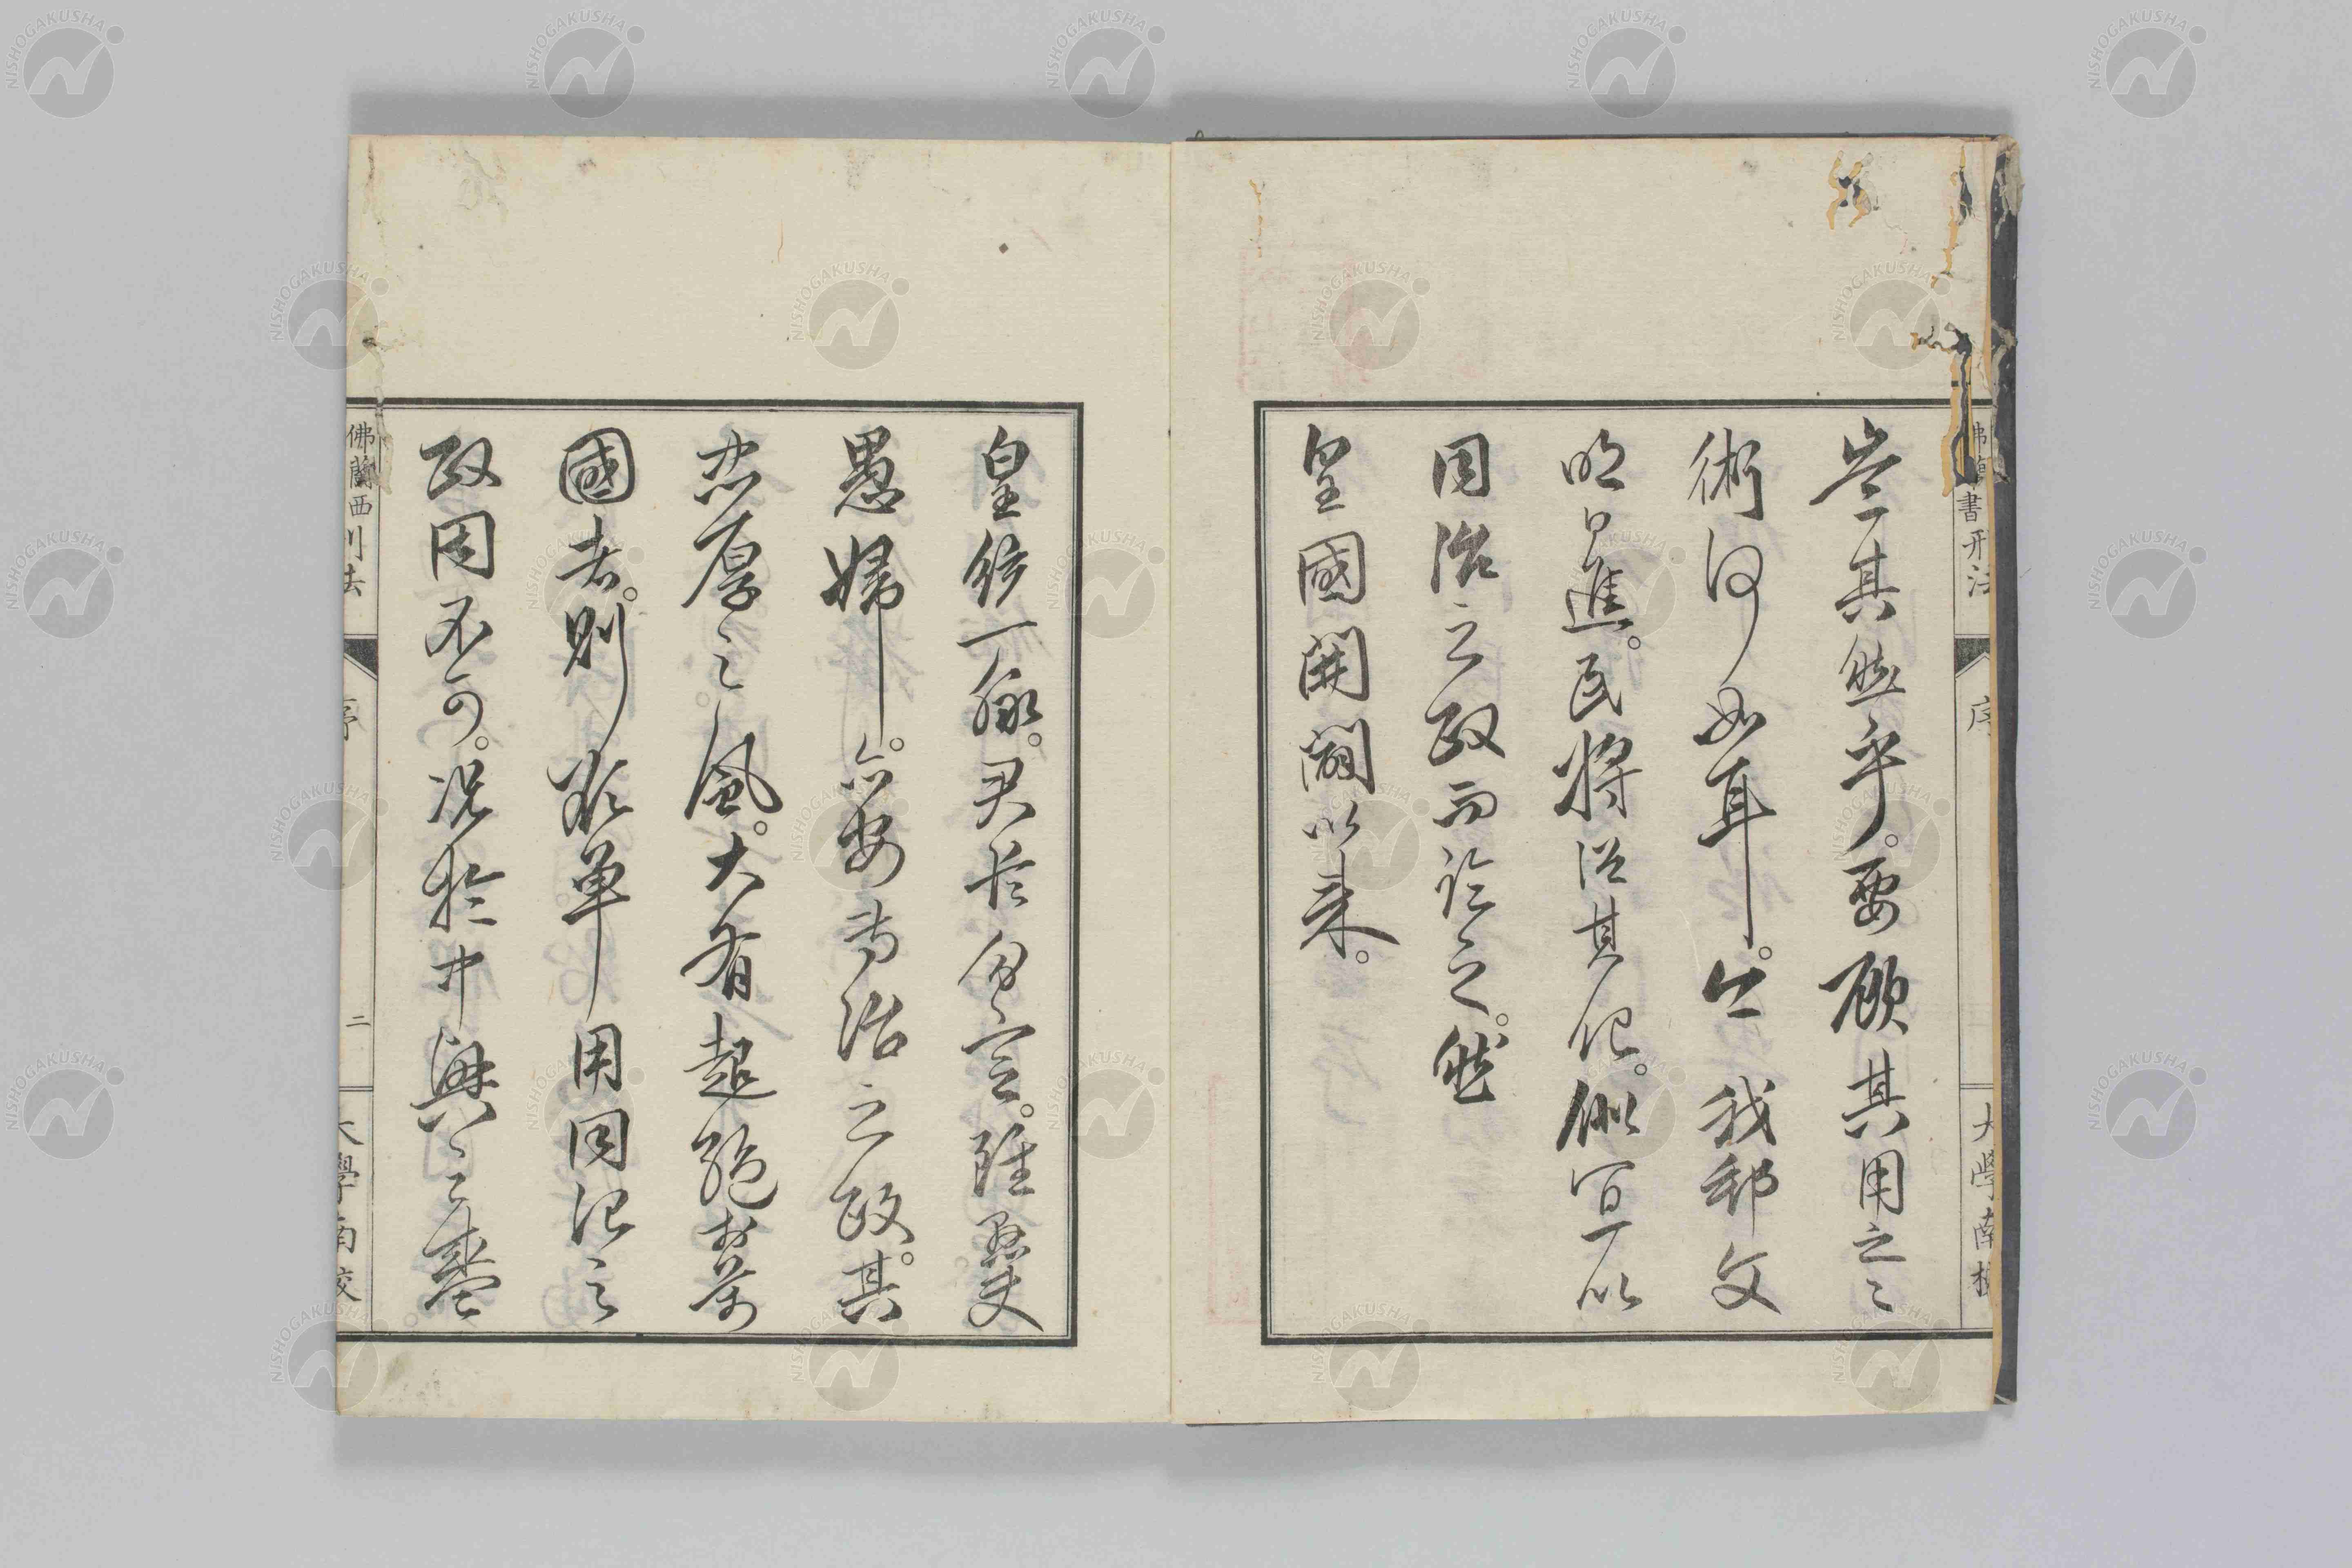 書刑法
序
大學南校
豈其然乎。要顧其用之之
術何如耳。今我邦文
明日進。民將從其化。似宜以
同治之政而論之。然
皇國開闢以來。
皇統一脈。君臣分定。雖愚夫
愚婦。亦安専治之政。其
忠厚之風。大有超絶於萬
國者。則欲単用同治之
政固不可。況於中興之盛
佛蘭西刑法
序
二
大學南校